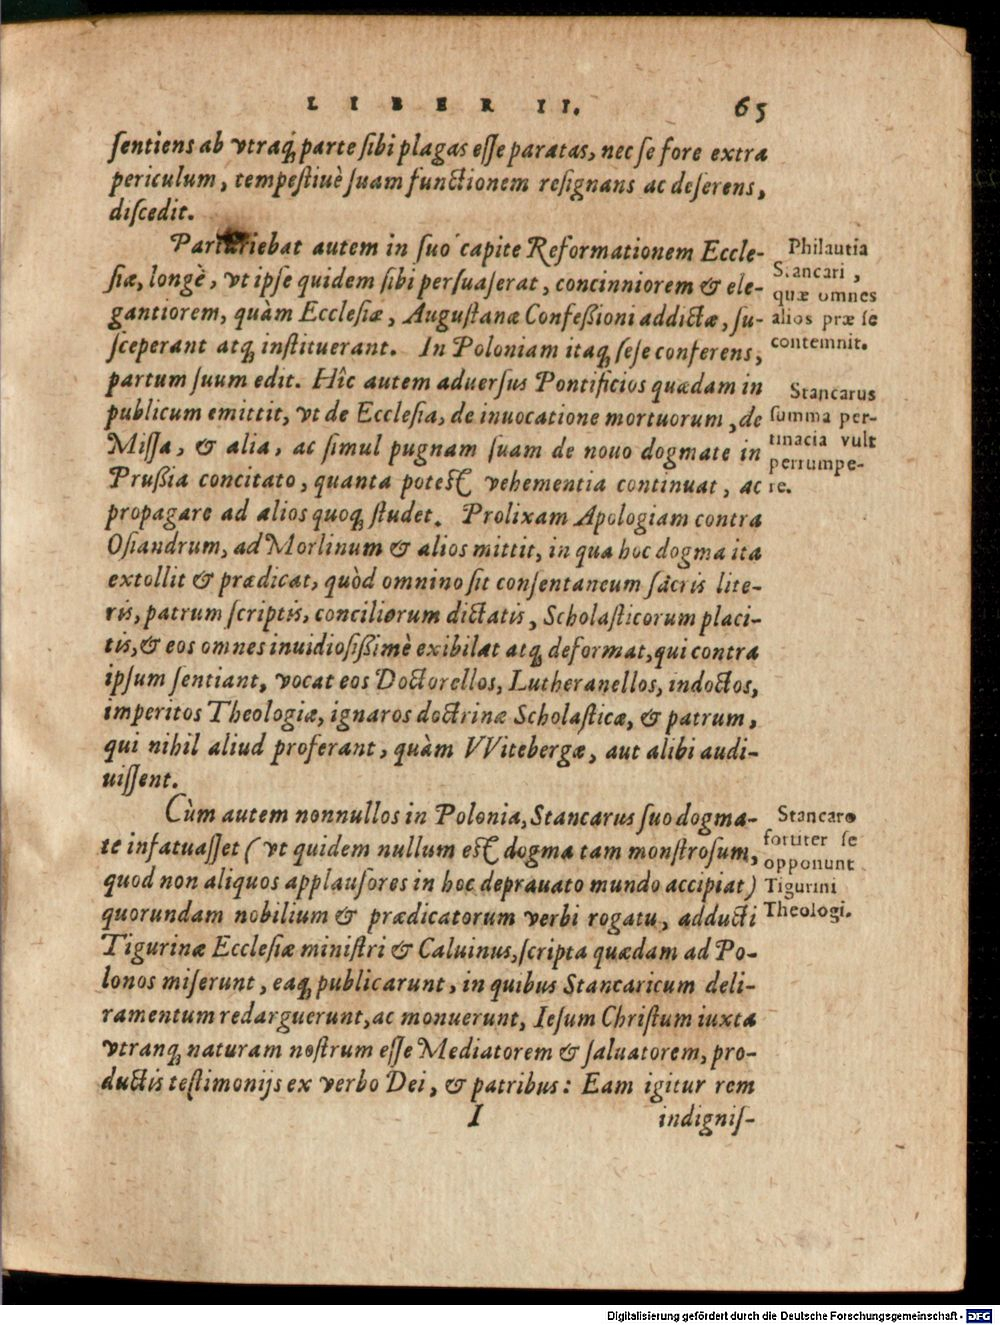 LIBER II. 65
ſentiens ab vtraq́; parte ſibi plagas eſſe paratas, nec ſe fore extra
periculum, tempeſtiuè ſuam functionem reſignans ac deſerens,
diſcedit.
Parturiebat autem in ſuo capite Reformationem Eccle-
ſiæ, longè, vt ipſe quidem ſibi perſuaſerat, concinniorem & ele-
gantiorem, quàm Eccleſiæ, Auguſtanæ Confeßioni addictæ, ſu-
ſceperant atq́; inſtituerant. In Poloniam itaq́; ſeſe conferens,
partum ſuum edit. Hîc autem aduerſus Pontificios quædam in
publicum emittit, vt de Eccleſia, de inuocatione mortuorum, de
Miſſa, & alia, ac ſimul pugnam ſuam de nouo dogmate in
Prußia concitato, quanta poteſt vehementia continuat, ac
propagare ad alios quoq́; ſtudet. Prolixam Apologiam contra
Oſiandrum, ad Morlinum & alios mittit, in qua hoc dogma ita
extollit & prædicat, quòd omnino ſit conſentaneum ſacris lite-
ris, patrum ſcriptis, conciliorum dictatis, Scholaſticorum placi-
tis, & eos omnes inuidioſißimè exibilat atq́; deformat, qui contra
ipſum ſentiant, vocat eos Doctorellos, Lutheranellos, indoctos,
imperitos Theologiæ, ignaros doctrinæ Scholaſticæ, & patrum,
qui nihil aliud proferant, quàm VVitebergæ, aut alibi audi-
uiſſent.
Cùm autem nonnullos in Polonia, Stancarus ſuo dogma-
te infatuaſſet (vt quidem nullum eſt dogma tam monſtroſum,
quod non aliquos applauſores in hoc deprauato mundo accipiat)
quorundam nobilium & prædicatorum verbi rogatu, adducti
Tigurinæ Eccleſiæ miniſtri & Caluinus, ſcripta quædam ad Po-
lonos miſerunt, eaq́; publicarunt, in quibus Stancaricum deli-
ramentum redarguerunt, ac monuerunt, Ieſum Chriſtum iuxta
vtranq́; naturam noſtrum eſſe Mediatorem & ſaluatorem, pro-
ductis teſtimonijs ex verbo Dei, & patribus: Eam igitur rem
I indigniſ-
Philautia
Stancari,
quæ omnes
alios præ ſe
contemnit.
Stancarus
ſumma per-
tinacia vult
perrumpe-
re.
Stancaro
fortiter ſe
opponunt
Tigurini
Theologi.
Digitalisierung gefördert durch die Deutsche Forschungsgemeinschaft - DFG